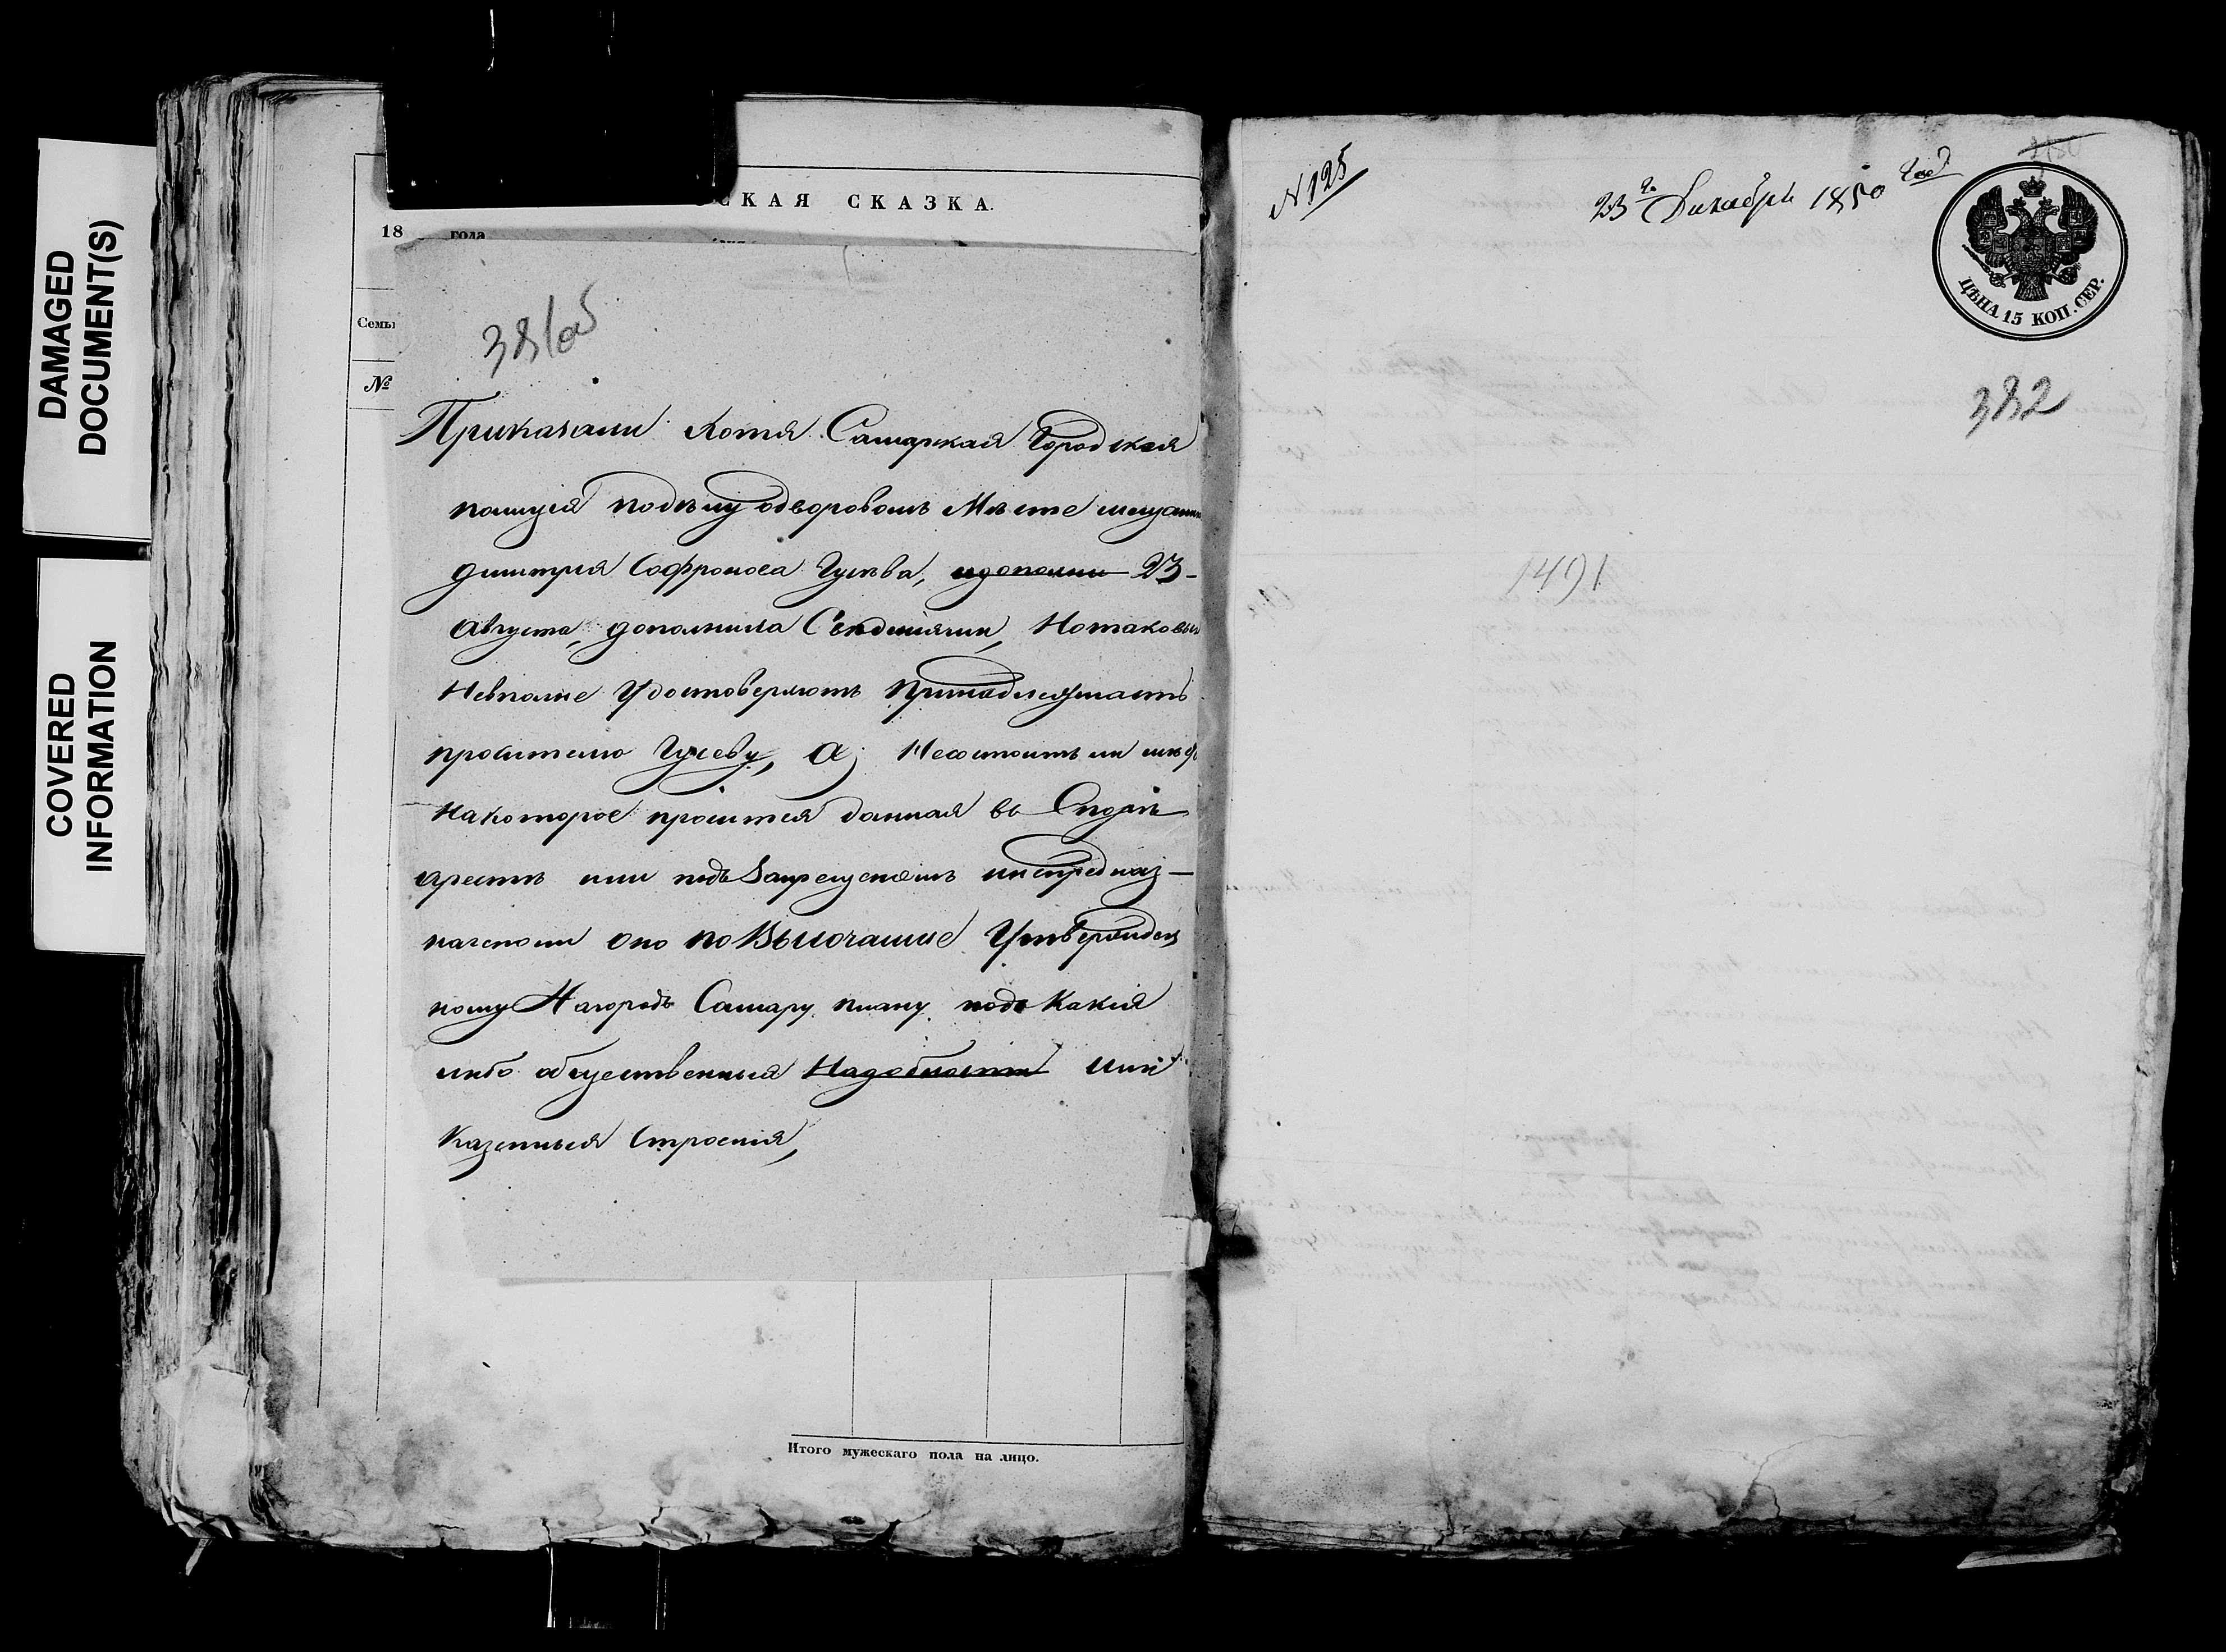 DAMAGED
DOCUMENT(S)
COVERED
INFORMATION
СКАЯ СКАЗКА.
18 года
Семьи
№
381 об
Приказали Хотя Самарская Городская
полиція подѣлу одворовомъ Мѣсте мещанин
димитрія Софронова Гусѣва, идополни 23-
Августа, дополнила Свѣденіями, Нотаковыя
Невполне Удостоверяютъ Принадлежность
просителю Гусеву, а; Несостоитъ ли
Накоторое просится данная въ Опузѣ
арестѣ или подъ Запрещеніемъ инепредназ-
начено ли оно по Высочайше Утвержден
ному Нагородъ Самару плану подъ Какія
либо общественныя Надобности или
Казенныя Строенія,
Итого мужескаго пола на лицо.
N 125
23го Декабря 1850 год
ЦѢНА 15 КОП. СЕР.
382
1491